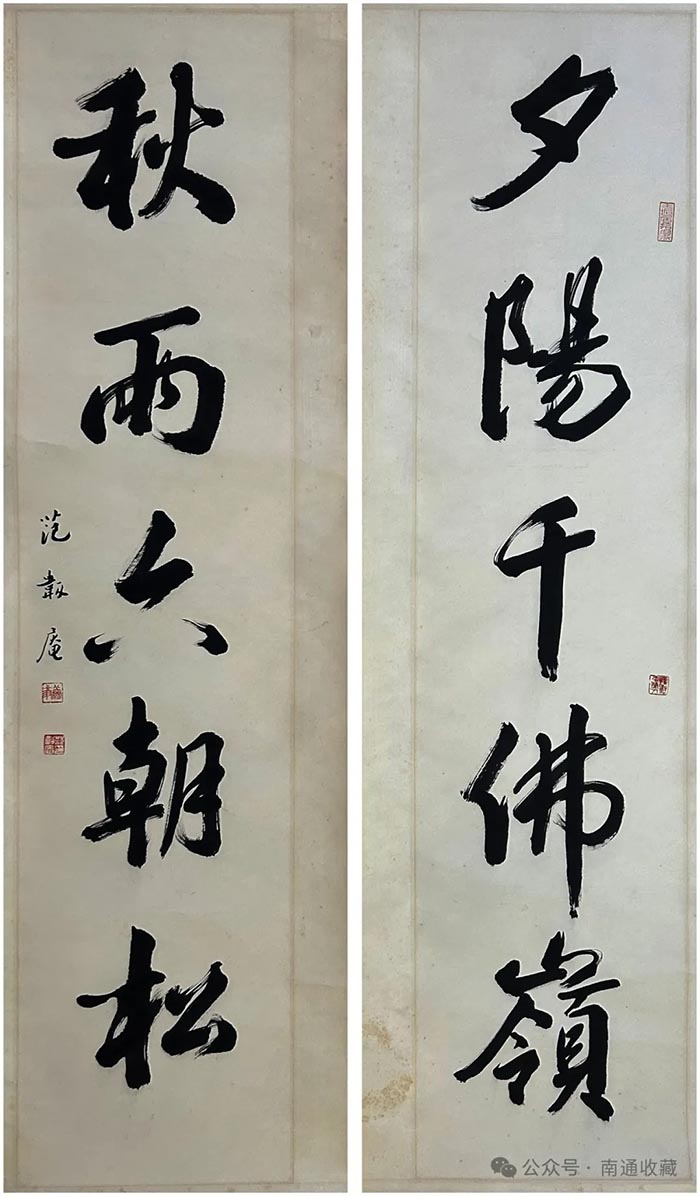 夕陽千佛嶺
秋雨六朝松
范敬庵
公众号·南通收藏